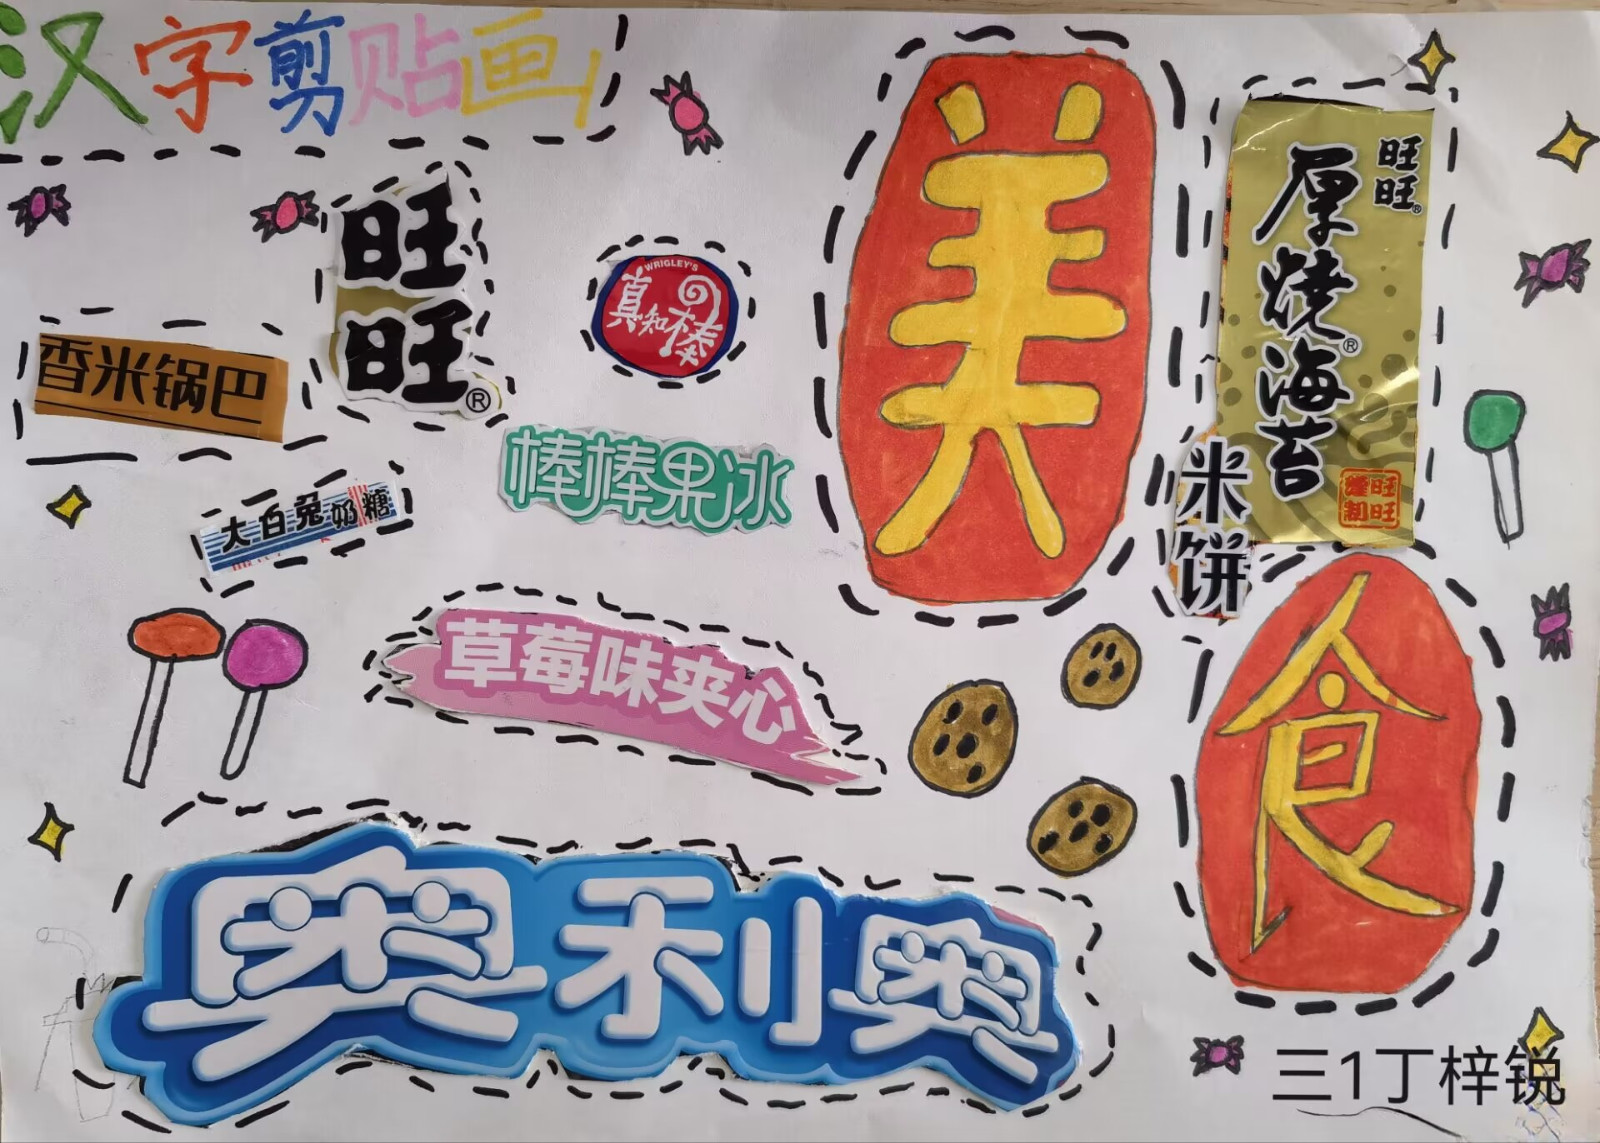 汉字剪贴画
旺旺
®
WRIGLEY'S
真知棒
香米锅巴
棒棒果冰
大白兔奶糖
草莓味夹心
奥利奥
美食
旺旺®
厚烧海苔
®
旺旺
米饼
三1丁梓锐